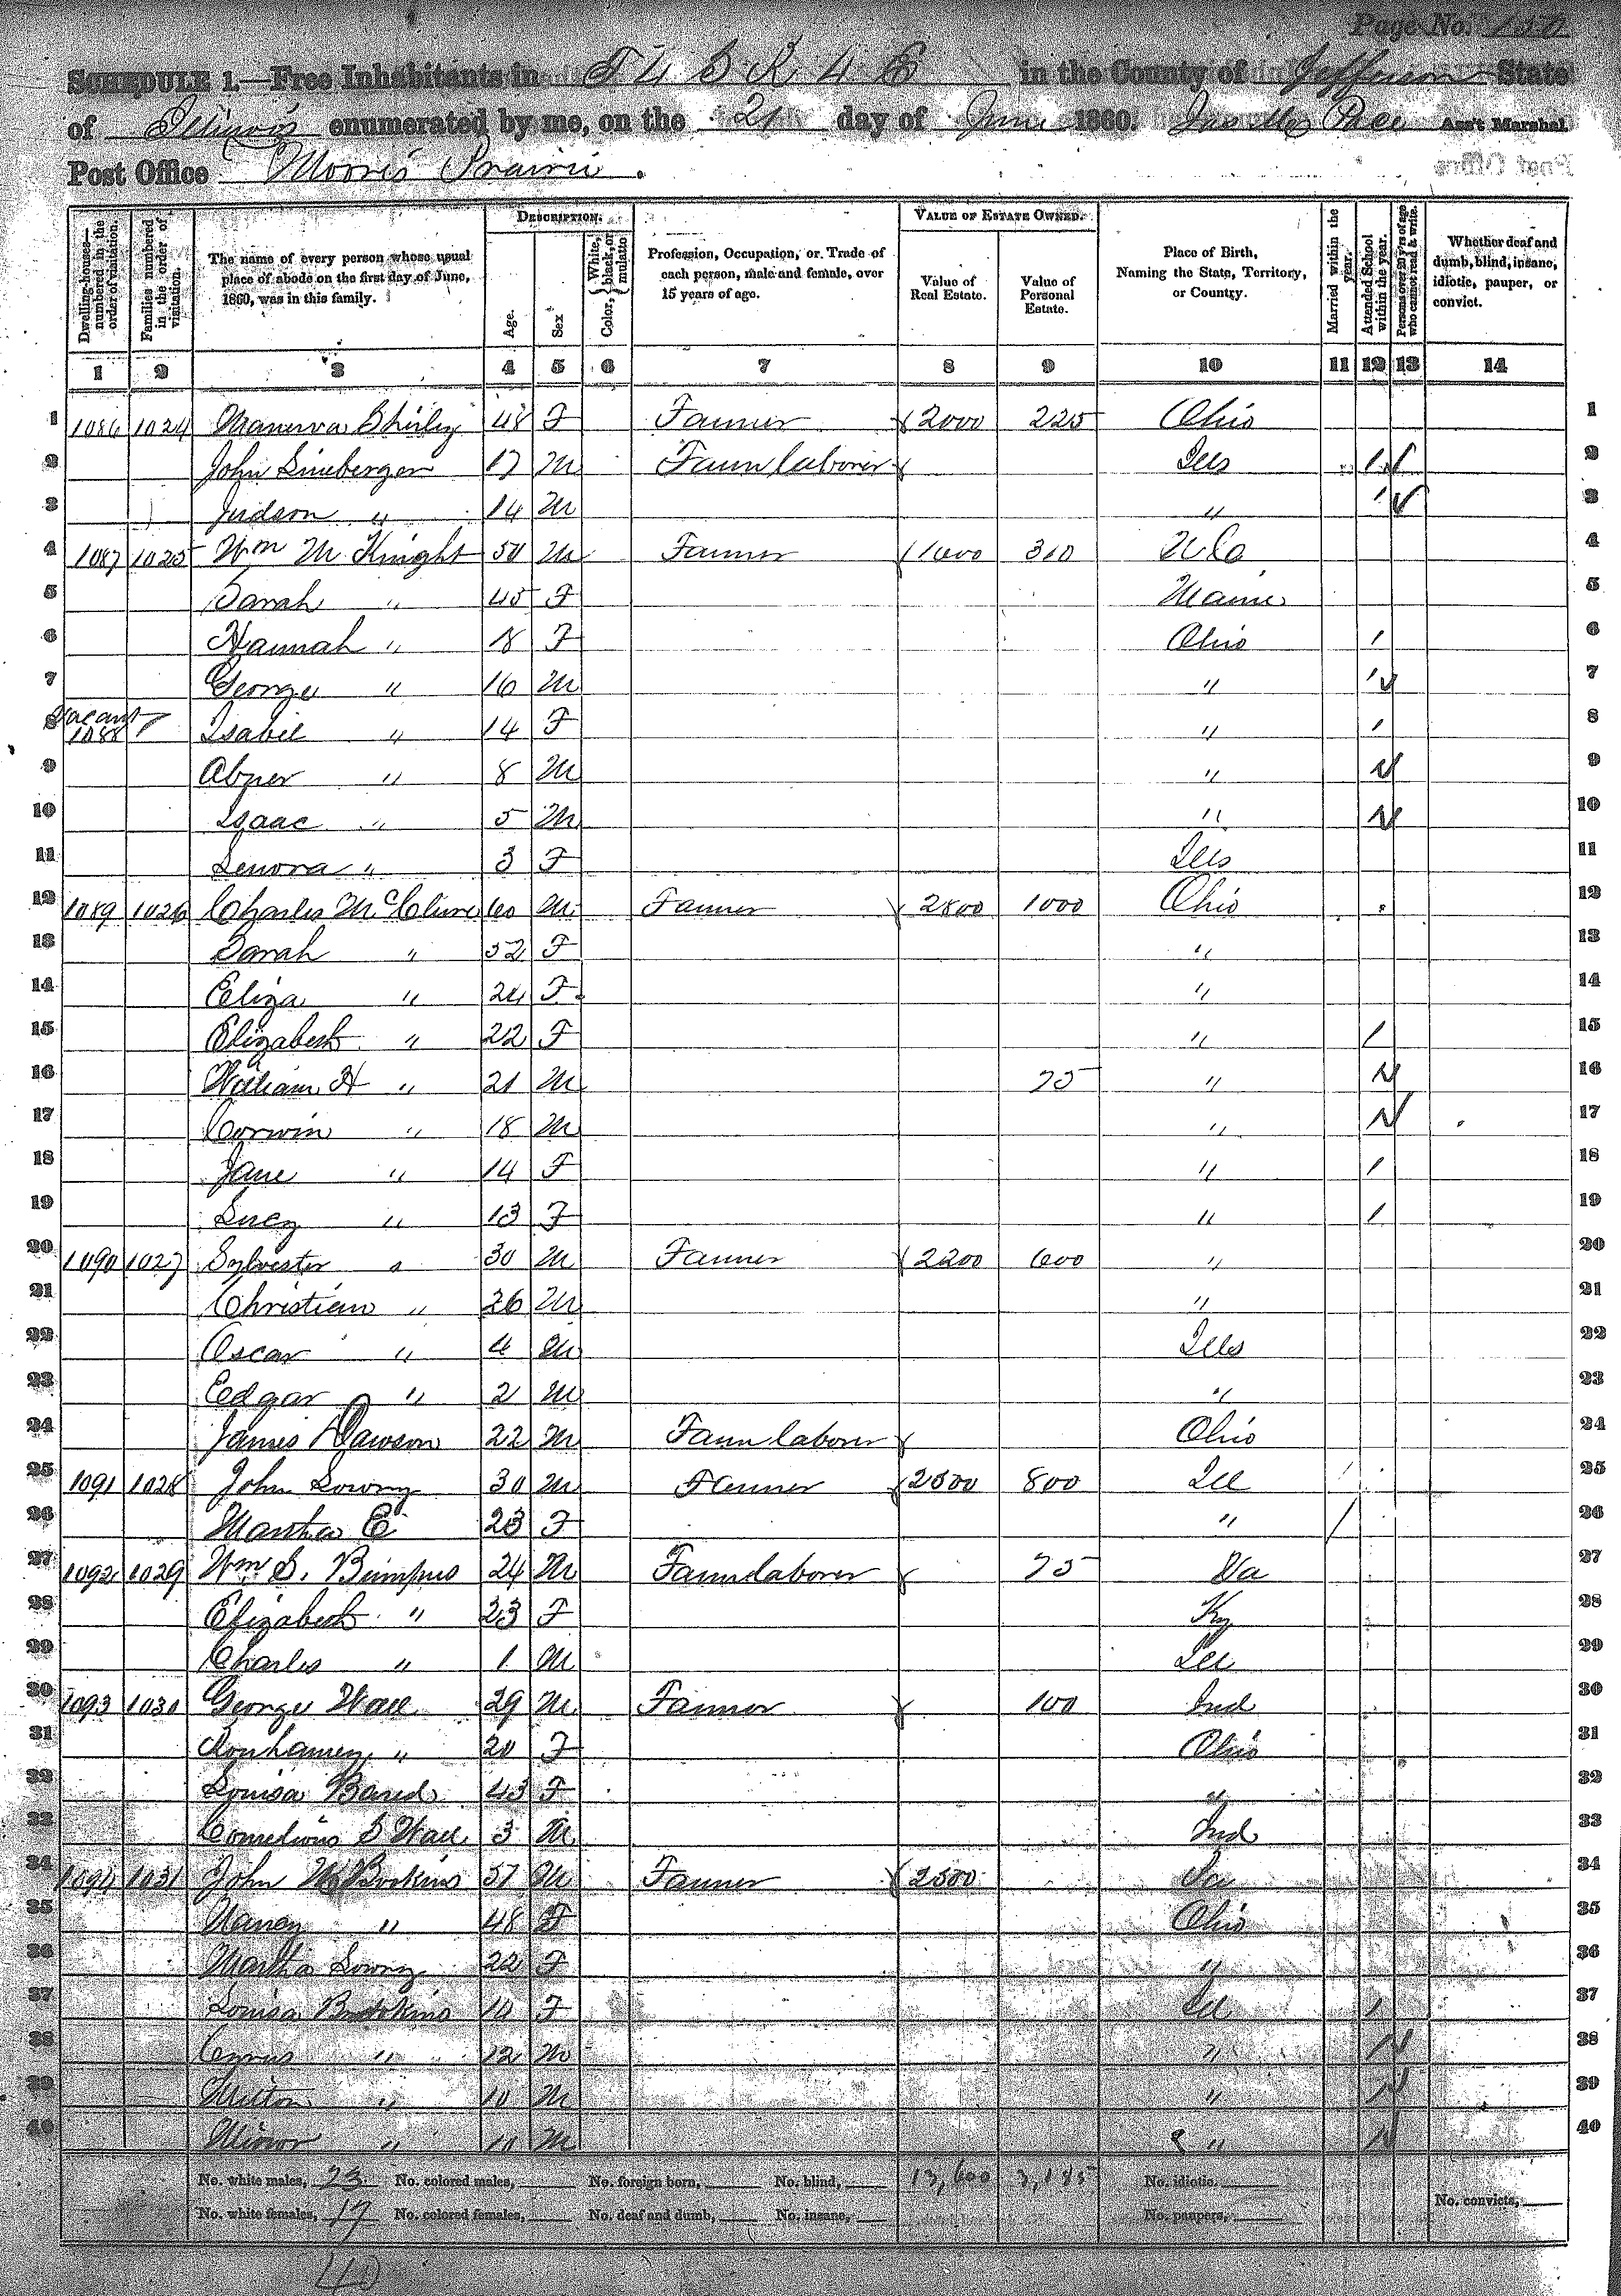 Page No. 150
SCHEDULE 1.—Free Inhabitants in T 4 S R 4 E in the County of Jefferson State
of Illinois enumerated by me, on the 21 day of June 1860. Pace Ass't Marshal.
Post Office Moores Prairie.
Dwelling-houses—numbered in the order of visitation. Families numbered in the order of visitation. The name of every person whose usual place of abode on the first day of June, 1860, was in this family. DESCRIPTION. Age. Sex Color, White, black, or mulatto Profession, Occupation, or Trade of each person, male and female, over 15 years of age. VALUE OF ESTATE OWNED. Value of Real Estate. Value of Personal Estate. Place of Birth, Naming the State, Territory, or Country. Married within the year. Attended School within the year. Persons over 20 y'rs of age who cannot read & write. Whether deaf and dumb, blind, insane, idiotic, pauper, or convict.
1 2 3 4 5 6 7 8 9 10 11 12 13 14
1 1086 1024 Manerva Shirley 48 F Farmer 2000 225 Ohio 1
2 John Lineberger 17 M Farm laborer Ills / 2
3 Judson " 14 M " / 3
4 1087 1025 Wm M Knight 50 M Farmer 1000 310 N Ca 4
5 Sarah " 45 F Maine 5
6 Hannah " 18 F Ohio / 6
7 George " 16 M " / 7
8 Vacant 1088 Isabel " 14 F " / 8
9 Abner " 8 M " / 9
10 Isaac " 5 M " / 10
11 Lenora " 3 F Ills 11
12 1089 1026 Charles McClure 60 M Farmer 2800 1000 Ohio 12
13 Sarah " 52 F " 13
14 Eliza " 24 F " 14
15 Elizabeth " 22 F " / 15
16 William H " 21 M 75 " / 16
17 Corwin " 18 M " / 17
18 Jane " 14 F " / 18
19 Lucy " 13 F " / 19
20 1090 1027 Sylvester " 30 M Farmer 2200 600 " 20
21 Christian " 26 M " 21
22 Oscar " 4 M Ills 22
23 Edgar " 2 M " 23
24 James Dawson 22 M Farm laborer Ohio 24
25 1091 1028 John Lowry 30 M Farmer 2500 800 Ill 25
26 Martha E 23 F " / 26
27 1092 1029 Wm S. Bumpus 24 M Farm laborer 75 Va 27
28 Elizabeth " 23 F Ky 28
29 Charles " 1 M Ill 29
30 1093 1030 George Wall 29 M Farmer 100 Ind 30
31 " 20 F Ohio 31
32 Louisa 43 F " 32
33 Cornelious S Wall 3 M Ind 33
34 1094 1031 John 57 M Farmer 2500 34
35 Nancy " 48 F Ohio 35
36 Martha Lowry 22 F " 36
37 Louisa 14 F Ill / 37
38 Cyrus " 12 M " / 38
39 Milton " 10 M " / 39
40 Minor " 10 M " / 40
No. white males, 23 No. colored males, No. foreign born, No. blind, 13,600 3,185 No. idiotic.
No. white females, 17 No. colored females, No. deaf and dumb, No. insane, No. paupers, No. convicts,
40